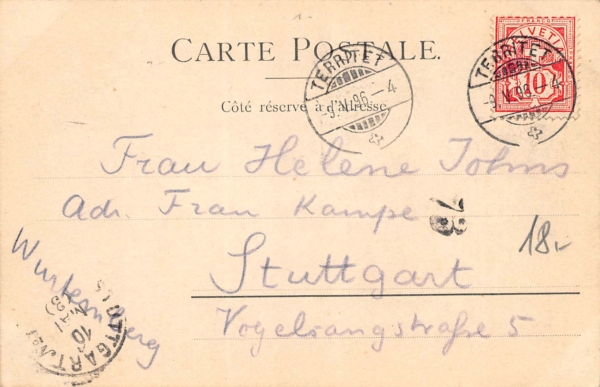 CARTE POSTALE.
HELVETIA
10
TERRITET
TERRITET
-4
-4
Côté réservé à l'adresse.
Frau Helene Johns
Adr. Frau Kampe
73
Stuttgart
18.-
Württemberg
Vogelsangstraße 5
STUTTGART
10